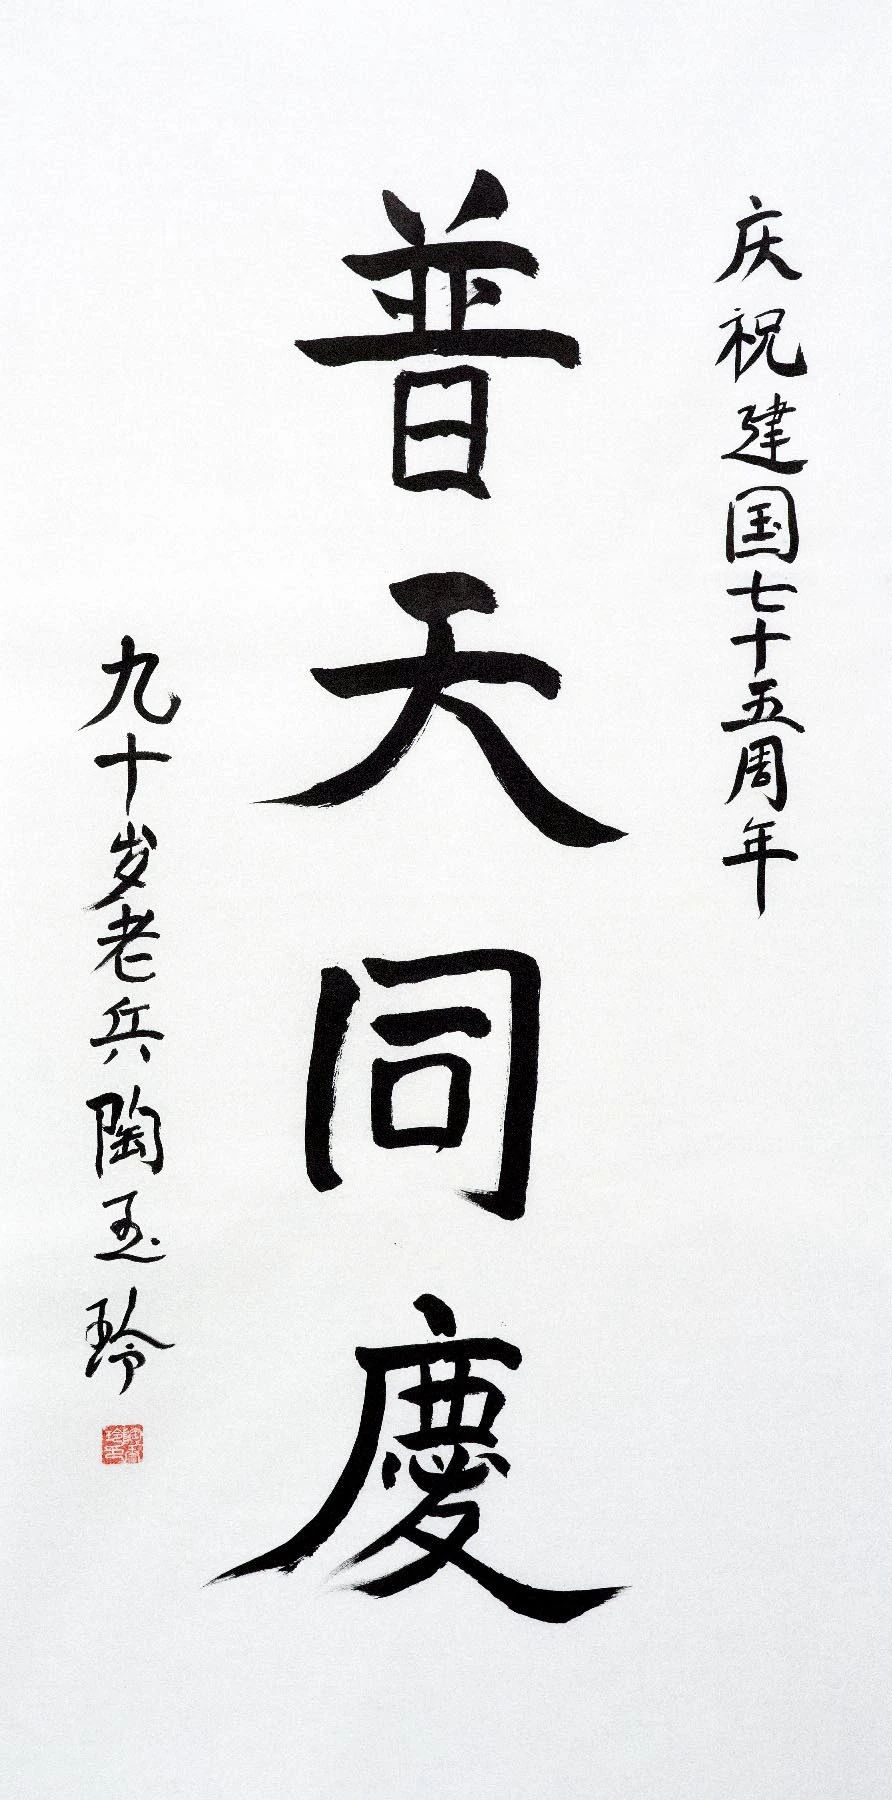 庆祝建国七十五周年
普天同慶
九十岁老兵陶玉玲